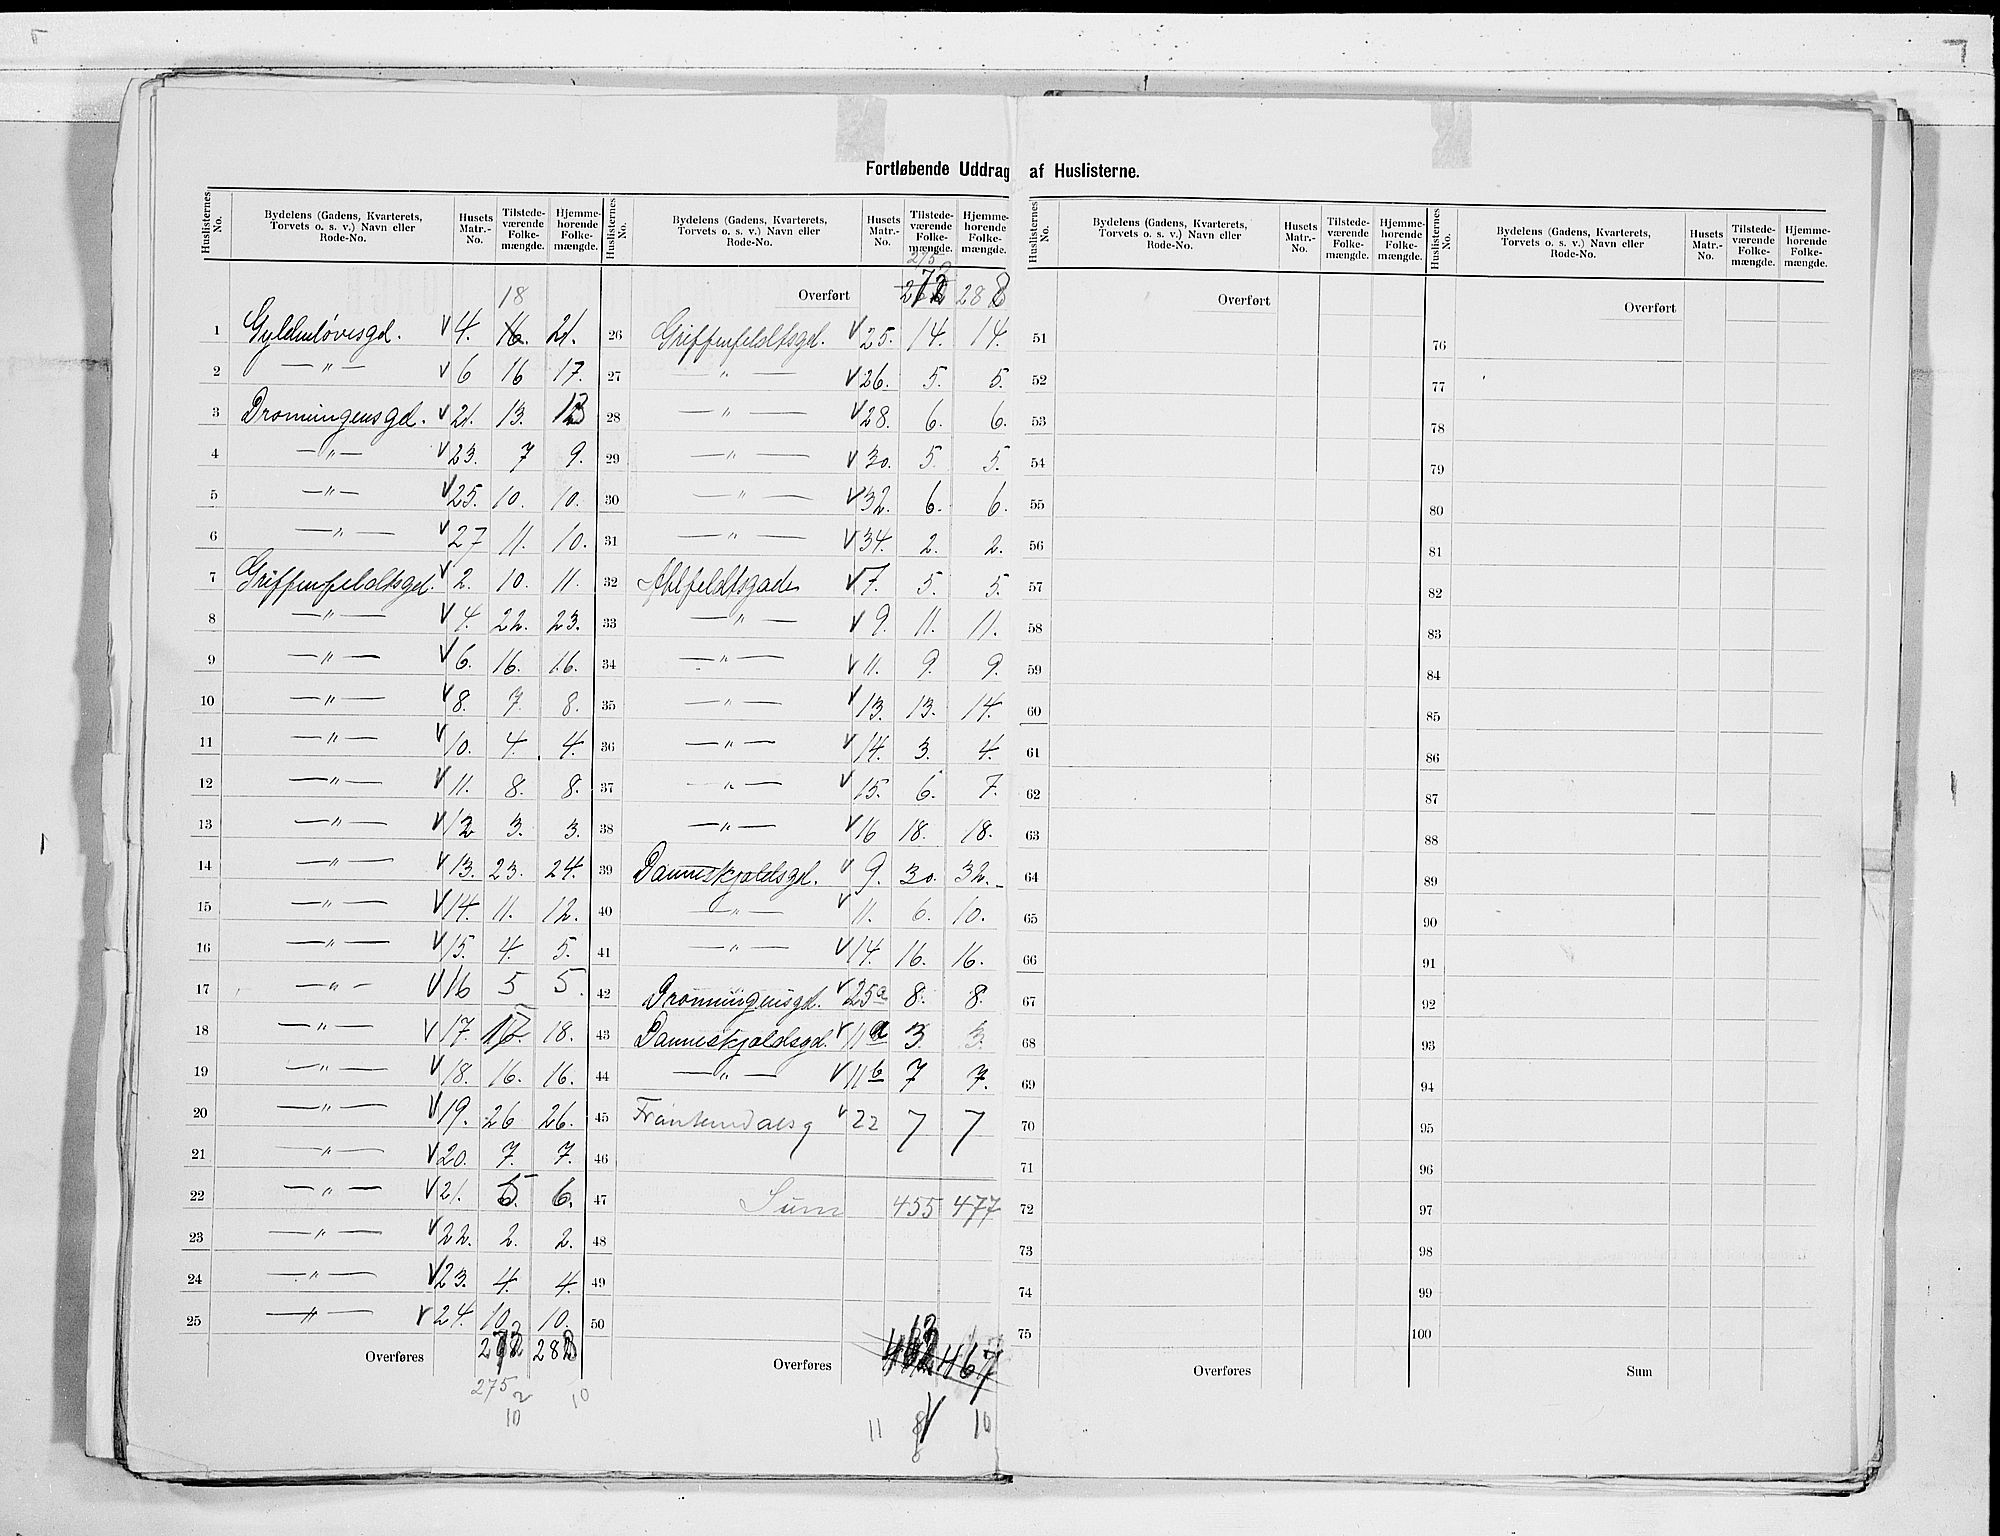 Fortløbende Uddrag af Huslisterne.
Huslisternes No. | Bydelens (Gadens, Kvarterets, Torvets o. s. v.) Navn eller Rode-No. | Husets Matr.-No. | Tilstedeværende Folkemængde. | Hjemmehørende Folkemængde.
18
1 Gyldenløvesgd. V 4. 16. 21.
2 —〃— V 6 16 17.
3 Dronningensgd. V 21. 13. 13
4 —〃— V 23. 7 9.
5 —〃— V 25. 10. 10.
6 —〃— V 27 11. 10.
7 Griffenfeldtsgd. V 2. 10. 11.
8 —〃— V 4. 22. 23.
9 —〃— V 6. 16. 16.
10 —〃— V 8. 7. 8.
11 —〃— V 10. 4. 4.
12 —〃— V 11. 8. 8.
13 —〃— V 12 3. 3.
14 —〃— V 13. 23. 24.
15 —〃— V 14. 11. 12.
16 —〃— V 15. 4. 5.
17 —〃— V 16 5 5.
18 —〃— V 17. 17. 18.
19 —〃— V 18. 16. 16.
20 —〃— V 19. 26 26.
21 —〃— V 20. 7. 7.
22 —〃— V 21. 5. 6.
23 —〃— V 22. 2. 2.
24 —〃— V 23. 4. 4.
25 —〃— V 24. 10. 10.
Overføres
275 2 10
10
Huslisternes No. | Bydelens (Gadens, Kvarterets, Torvets o. s. v.) Navn eller Rode-No. | Husets Matr.-No. | Tilstedeværende Folkemængde. | Hjemmehørende Folkemængde.
275
Overført
26 Griffenfeldtsgd. V 25. 14. 14.
27 —〃— V 26. 5. 5.
28 —〃— V 28. 6. 6.
29 —〃— V 30. 5. 5.
30 —〃— V 32. 6. 6.
31 —〃— V 34. 2. 2.
32 Ahlfeldtsgade V 7. 5. 5.
33 —〃— V 9. 11. 11.
34 —〃— V 11. 9. 9.
35 —〃— V 13. 13. 14.
36 —〃— V 14. 3. 4.
37 —〃— V 15. 6. 7.
38 —〃— V 16 18. 18.
39 Danneskjoldsgd. V 9. 30. 32.
40 —〃— V 11. 6. 10.
41 —〃— V 14. 16. 16.
42 Dronningensgd. V 25a 8. 8.
43 Danneskjoldsgd. V 11a 3. 3.
44 —〃— V 11b 7 7.
45 V 22 7 7
46
47 Sum 455 477
48
49
50
Overføres 467
11 8 V 10
8
Huslisternes No. | Bydelens (Gadens, Kvarterets, Torvets o. s. v.) Navn eller Rode-No. | Husets Matr.-No. | Tilstedeværende Folkemængde. | Hjemmehørende Folkemængde.
Overført
51
52
53
54
55
56
57
58
59
60
61
62
63
64
65
66
67
68
69
70
71
72
73
74
75
Overføres
Huslisternes No. | Bydelens (Gadens, Kvarterets, Torvets o. s. v.) Navn eller Rode-No. | Husets Matr.-No. | Tilstedeværende Folkemængde. | Hjemmehørende Folkemængde.
Overført
76
77
78
79
80
81
82
83
84
85
86
87
88
89
90
91
92
93
94
95
96
97
98
99
100
Sum